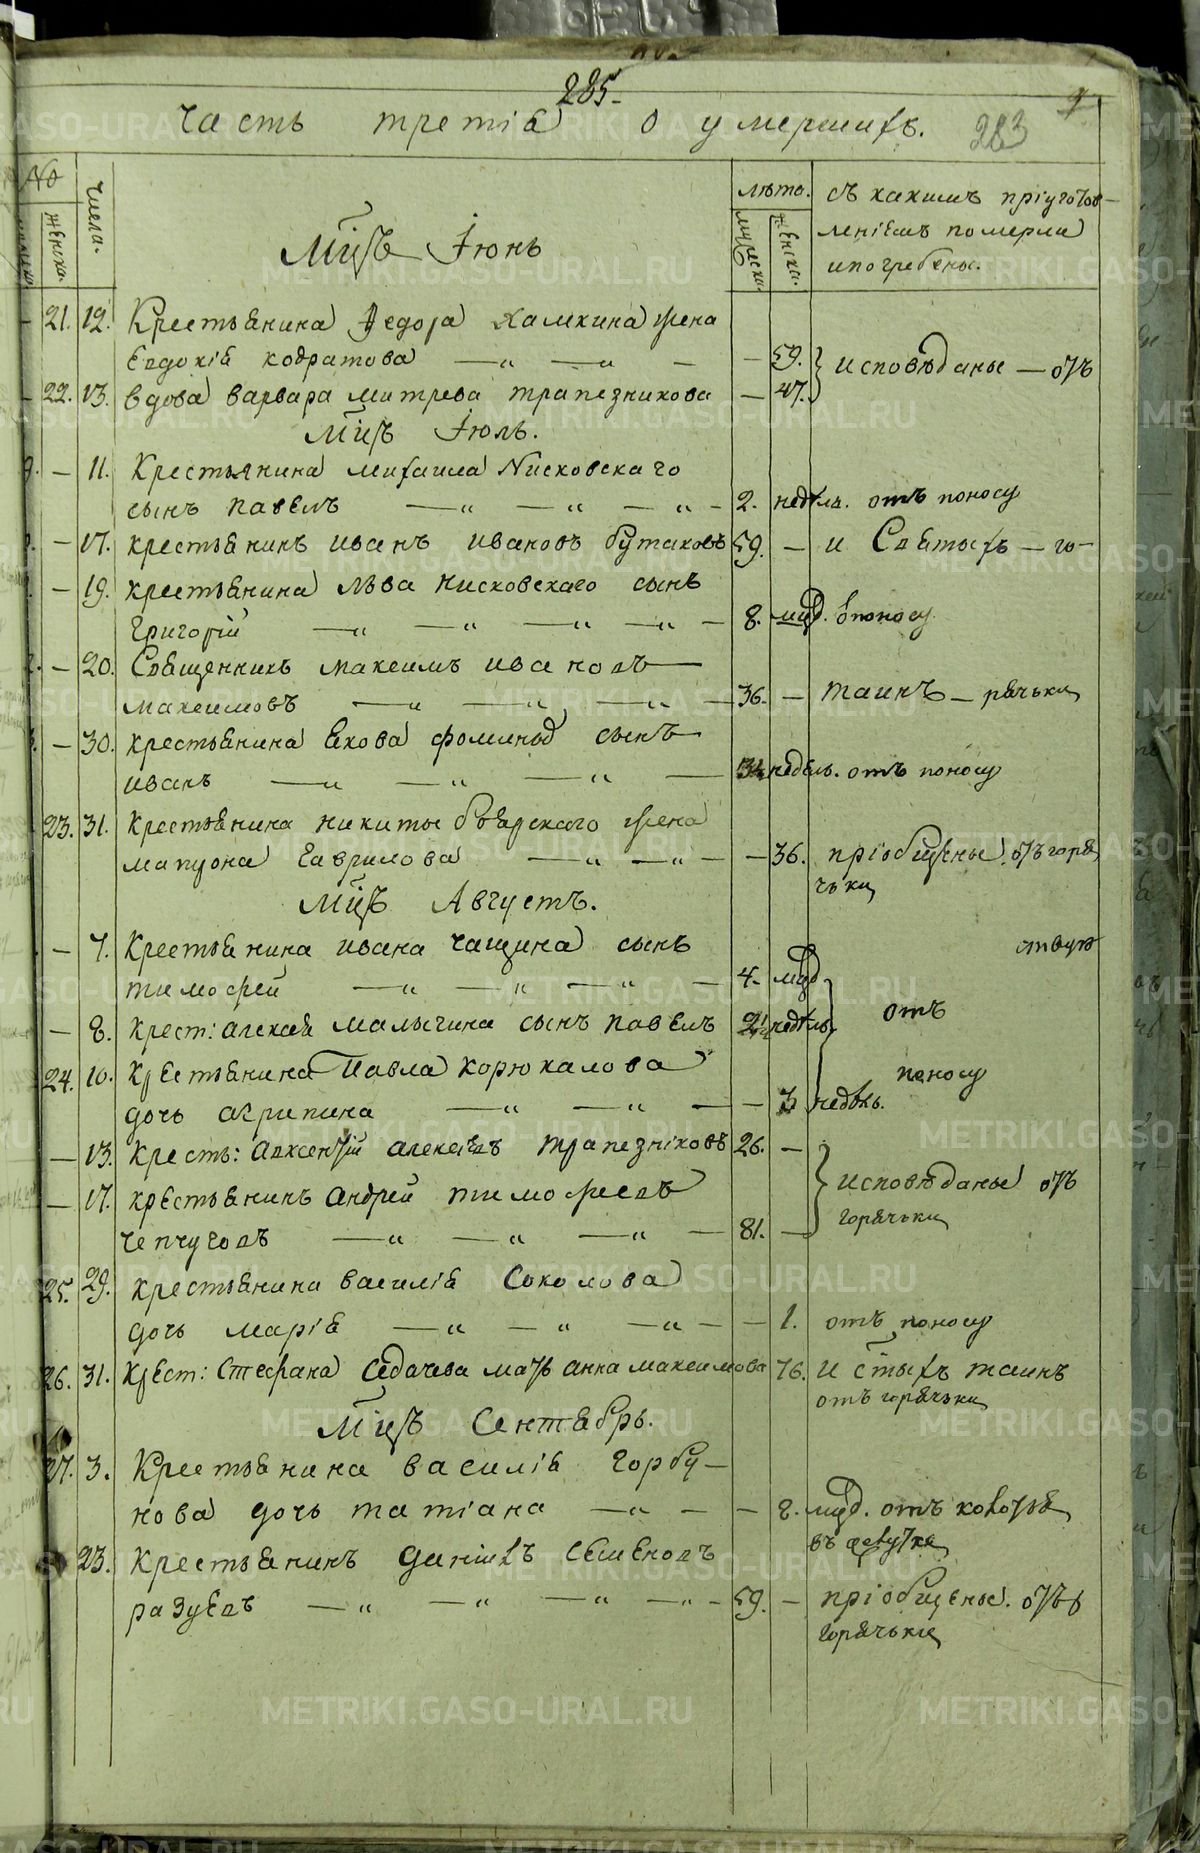 285.
Часть третія о умершихъ.
283
№
Женска.
Числа.
Мцъ Іюнь
лѣта.
мужеска.
Женска.
съ какимъ пріуготов-
леніемъ померли
и погребены.
21. 12. Крестьянина Федора Хамкина жена
Евдокія кодратова — „ — „ — — 59. исповѣданы — отъ
22. 13. вдова варвара митрева трапезникова — 47.
Мцъ Іюль.
— 11. Крестьянина михаила Нисковскаго
сынъ павелъ — „ — „ — „ — 2. недѣль. отъ поносу
— 17. крестьянинъ иванъ ивановъ бутаковъ 59. — и Святыхъ — го-
— 19. крестьянина льва нисковскаго сынъ
григорій — „ — „ — „ — „ — 8. мцъ. поносу
— 20. Священникъ максимъ ивановъ —
максимовъ — „ — „ — „ — 36. — таинъ — рячьки
— 30. крестьянина якова фоминыхъ сынъ —
иванъ — „ — „ — „ — недѣль. отъ поносу
23. 31. крестьянина никиты боярскаго жена
матрона гаврилова — „ — „ — — 36. пріобщены. отъ горя
чьки
Мцъ Августъ.
— 7. Крестьянина ивана чащина сынъ
тимофей — „ — „ — „ — 4. мцъ.
— 8. крест: алекѣя малыгина сынъ павелъ недѣль отъ
24. 10. Крестьянина Павла корюкалова поносу
дочь агрипина — „ — „ — — 3 недѣль.
— 13. кресть: авксентій алексѣевъ трапезниковъ 26. —
— 17. крестьянинъ андрей тимофеевъ исповѣданы отъ
чепчуговъ — „ — „ — „ — 81. — горячьки
25. 29. крестьянина василія Соколова
дочь марія — „ — „ — „ — — 1. отъ поносу
26. 31. Крест: Стефана Седачева мать анна максимова 76. и стыхъ таинъ
отъ горячьки
Мцъ Сентябрь.
27. 3. Крестьянина василія горбу-
нова дочь татіана — „ — — 8. мцъ. отъ
23. Крестьянинъ даніилъ семеновъ
разуевъ — „ — „ — „ — „ — 59. — пріобщены. отъ
горячьки